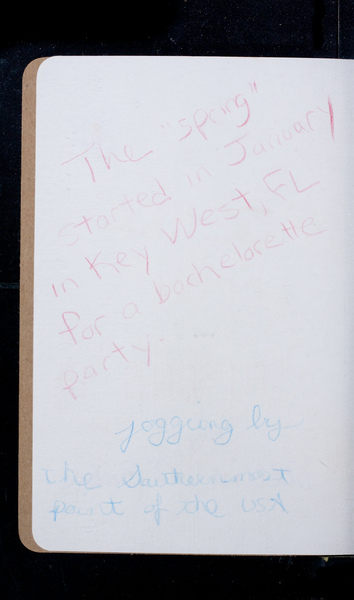 The "spring"
started in January
in Key West, FL
for a bachelorette
party.
jogging by
the Southernmost
point of the USA